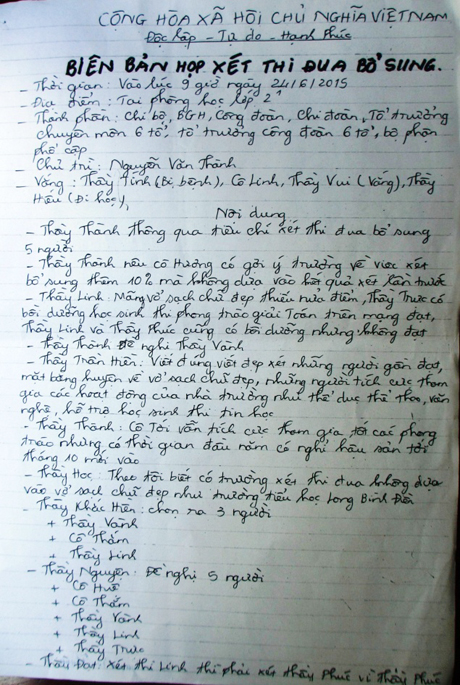 CỘNG HÒA XÃ HỘI CHỦ NGHĨA VIỆT NAM
Độc lập - Tự do - Hạnh Phúc
BIÊN BẢN HỌP XÉT THI ĐUA BỔ SUNG.
- Thời gian: Vào lúc 9 giờ ngày 24/6/2015
- Địa điểm: Tại phòng học lớp 2
- Thành phần: Chi bộ, BGH, Công đoàn, Chi đoàn, Tổ trưởng
chuyên môn 6 tổ, tổ trưởng công đoàn 6 tổ, bộ phận
phổ cập
- Chủ trì: Nguyễn Văn Thành
- Vắng: Thầy Tính (Bị bệnh), Cô Linh, Thầy Vui (Vắng), Thầy
Hiếu (Đi học),
Nội dung
- Thầy Thành thông qua tiêu chí xét thi đua bổ sung
5 người
- Thầy Thành nêu cô Hương có gởi ý trưởng về việc xét
bổ sung thêm 10% mà không dựa vào kết quả xét lần trước
- Thầy Linh: Mảng vở sạch chữ đẹp thiếu nửa điểm, Thầy Trực có
bồi dưỡng học sinh thi phong trào giải Toán trên mạng đạt,
Thầy Linh và Thầy Phúc cũng có bồi dưỡng nhưng không đạt
- Thầy Thành đề nghị Thầy Vành
- Thầy Trần Hiền: Viết đúng viết đẹp xét những người gần đạt,
mặt bằng huyện về vở sạch chữ đẹp, những người tích cực tham
gia các hoạt động của nhà trường như thể dục thể thao, văn
nghệ, hỗ trợ học sinh thi tin học
- Thầy Thành: Cô Tới vẫn tích cực tham gia tốt các phong
trào nhưng có thời gian đầu năm có nghỉ hậu sản tới
tháng 10 mới vào
- Thầy Học: Theo tôi biết có trường xét thi đua không dựa
vào vở sạch chữ đẹp như trường tiểu học Long Bình Điền
- Thầy Khắc Hiền: chọn ra 3 người
+ Thầy Vành
+ Cô Thắm
+ Thầy Linh
- Thầy Nguyên: Đề nghị 5 người
+ Cô Huê
+ Cô Thắm
+ Thầy Vành
+ Thầy Linh
+ Thầy Trực
- Thầy Đạt: xét thi Linh thì phải xét thầy Phúc vì Thầy Phúc